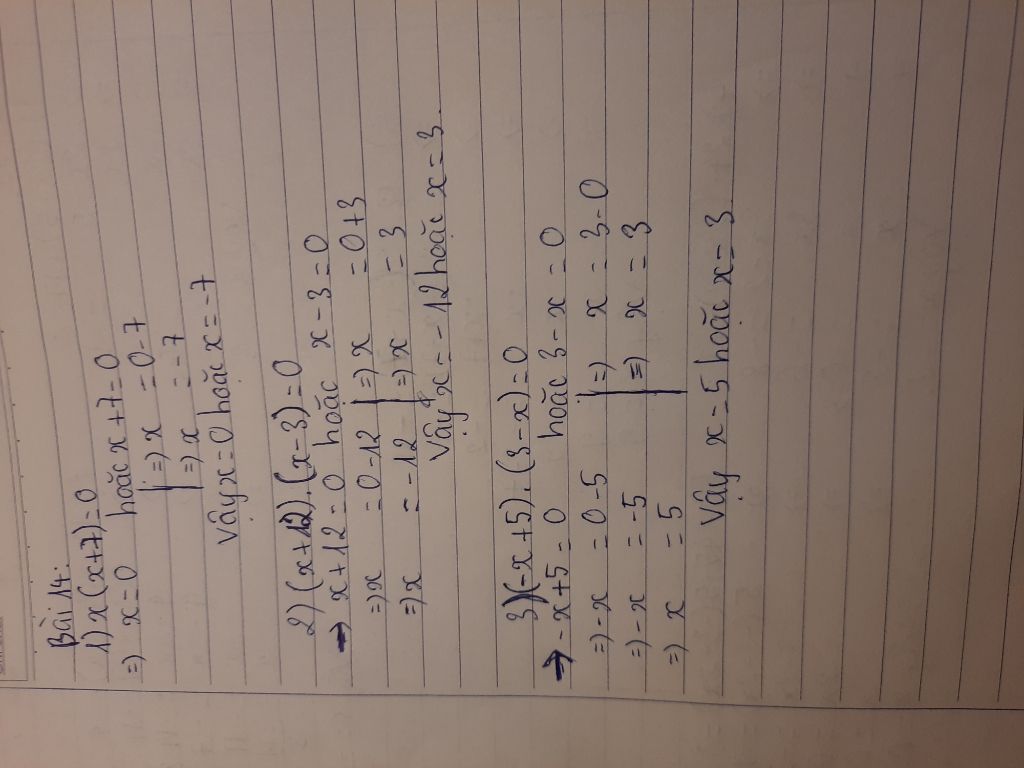 Bài 14.
1) x(x+7)=0
=) x=0 hoặc x+7=0
|=) x = 0-7
|=) x = -7
Vậy x=0 hoặc x=-7
2) (x+12).(x-3)=0
=) x+12=0 hoặc x-3=0
=) x = 0-12 |=) x = 0+3
=) x = -12 |=) x = 3
Vậy x=-12 hoặc x=3.
3) (-x+5).(3-x)=0
=) -x+5=0 hoặc 3-x=0
=) -x = 0-5 |=) x = 3-0
=) -x = -5 |=) x = 3
=) x = 5
Vậy x=5 hoặc x=3